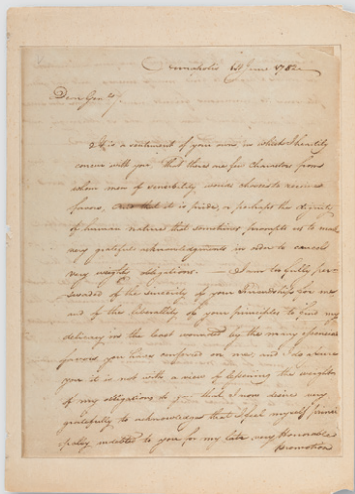 Annapolis 6th June 1782
Dear Gen'l,
It is a sentiment of your own, in which I heartily
concur with you, that there are few characters from
whom men of sensibility would choose to receive
favors, that it is pride, or perhaps the dignity
of human nature that sometimes prompts us to make
very grateful acknowledgments in order to cancel
very weighty obligations. — I am too fully per-
swaded of the sincerity of your friendship for me
and of the liberality of your principles to find my
delicacy in the least wounded by the many essential
favors you have conferred on me, and I do assure
you it is not with a view of lessening the weight
of my obligations to you that I now desire very
gratefully to acknowledge that I feel myself princi
pally indebted to you for my late very Honorable
Promotion